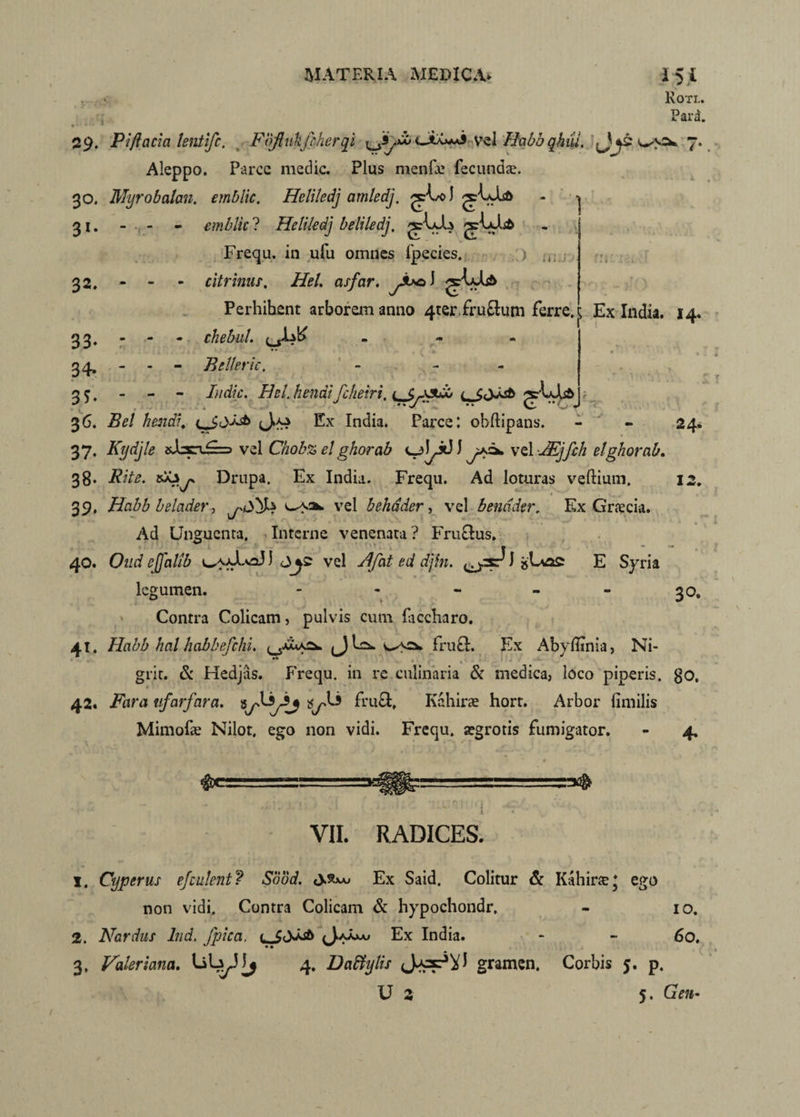 MATERIA MEDICA. 151
Rotl.
Pard.
29. Pistacia lentisc. Föstukscherqi فستق شرقي vel Habb qhúl. حب غول 7.
Aleppo. Parce medic. Plus mensæ secundæ.
30. Myrobalan. emblic. Heliledj amledj. هليلج املج -
31. - - - emblic? Heliledj beliledj. هليلج بليلج -
Frequ. in usu omnes species.
32. - - - citrinus. Hel. asfar. هليلج اصفر
Perhibent arborem anno 4ter fructum ferre. Ex India. 14.
33. - - - chebul. كابلي - - -
34. - - - Belleric. - - -
35. - - - Indic. Hel. hendi scheiri. هليلج هندي شعيري
36. Bel hendi. بل هندي Ex India. Parce: obstipans. - - 24.
37. Kydjle vel Chobz el ghorab خبز الغراب vel Æjsch elghorab.
38. Rite. ريته Drupa. Ex India. Frequ. Ad loturas vestium. 12.
39. Habb belader, حب بلادر vel beháder, vel benáder. Ex Græcia.
Ad Unguenta. Interne venenata? Fructus.
40. Oud essalib عود الصليب vel Asat ed djin. عصاة الجن E Syria
legumen. - - - - - 30.
Contra Colicam, pulvis cum saccharo.
41. Habb hal habbeschi. حب حال حبشي fruct. Ex Abyssinia, Ni-
grit. & Hedjâs. Frequ. in re culinaria & medica, lóco piperis. 80.
42. Fara ufarfara. فاره وفرفاره fruct. Káhiræ hort. Arbor similis
Mimosæ Nilot. ego non vidi. Frequ. ægrotis fumigator. - 4.
VII. RADICES.
1. Cyperus esculent? Sööd. سعد Ex Said. Colitur & Káhiræ; ego
non vidi. Contra Colicam & hypochondr. - 10.
2. Nardus Ind. spica. سنبل هندي Ex India. - - 60.
3. Valeriana. والريانا 4. Dactylis الانجيل gramen. Corbis 5. p.
U 2 5. Gen-